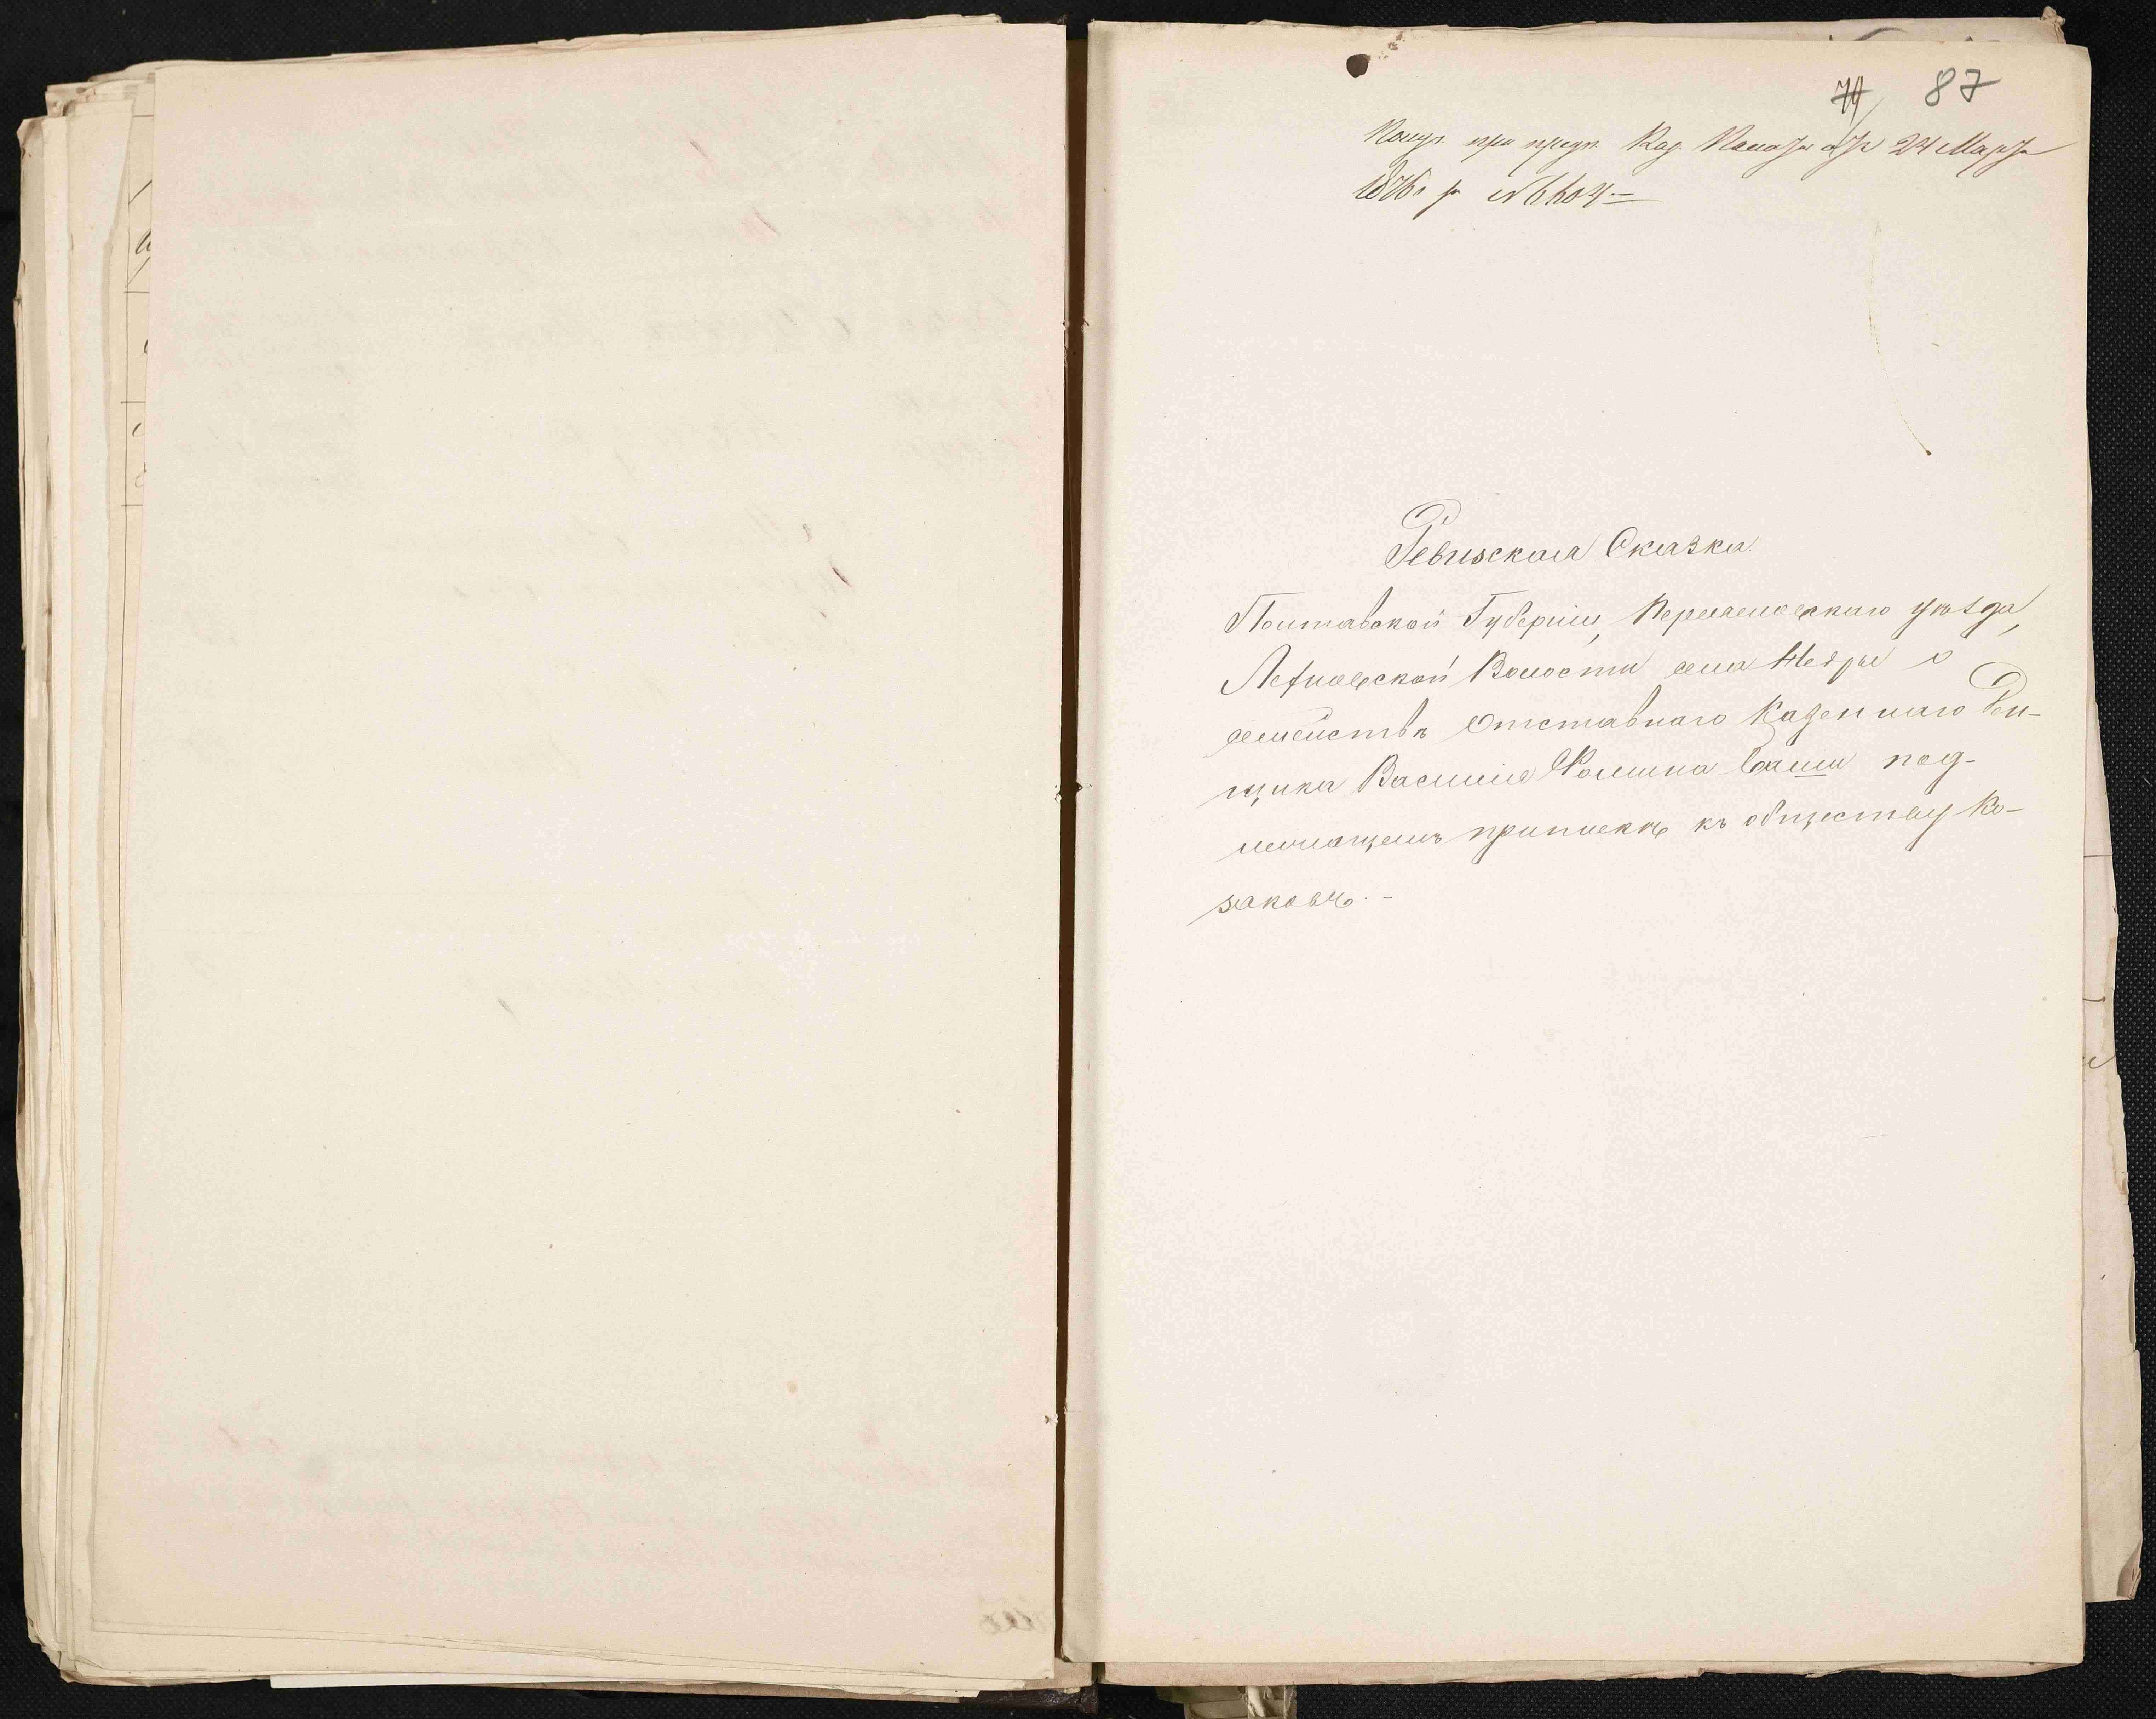 87
Получ. при предп. Каз. Палаты отъ 24 Марта
1876 г №
Ревизская Сказка.
Полтавской Губерніи, Переяславскаго уѣзда,
Волости села Недры о
семействѣ Отставнаго Казеннаго Ден-
щика Василія Фомина Саши под-
лежащемъ припискѣ къ обществу Ко-
заковъ. -